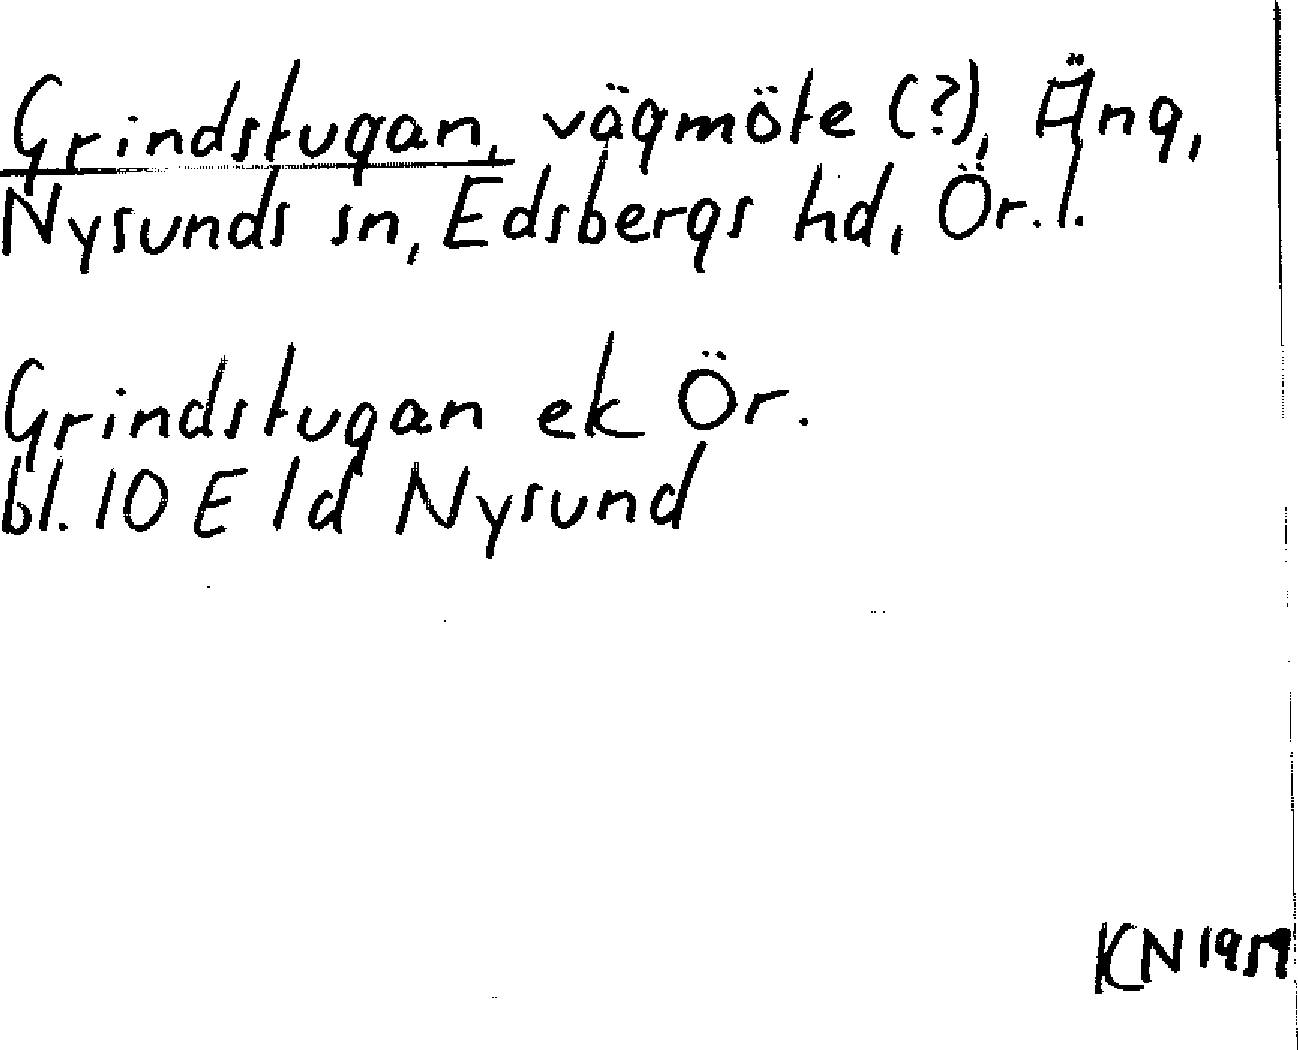 Grindstugan, vägmöte (?), Äng,
Nysunds sn, Edsbergs hd, Ör. l.
Grindstugan ek Ör.
bl. 10 E 1d Nysund
KN 1959